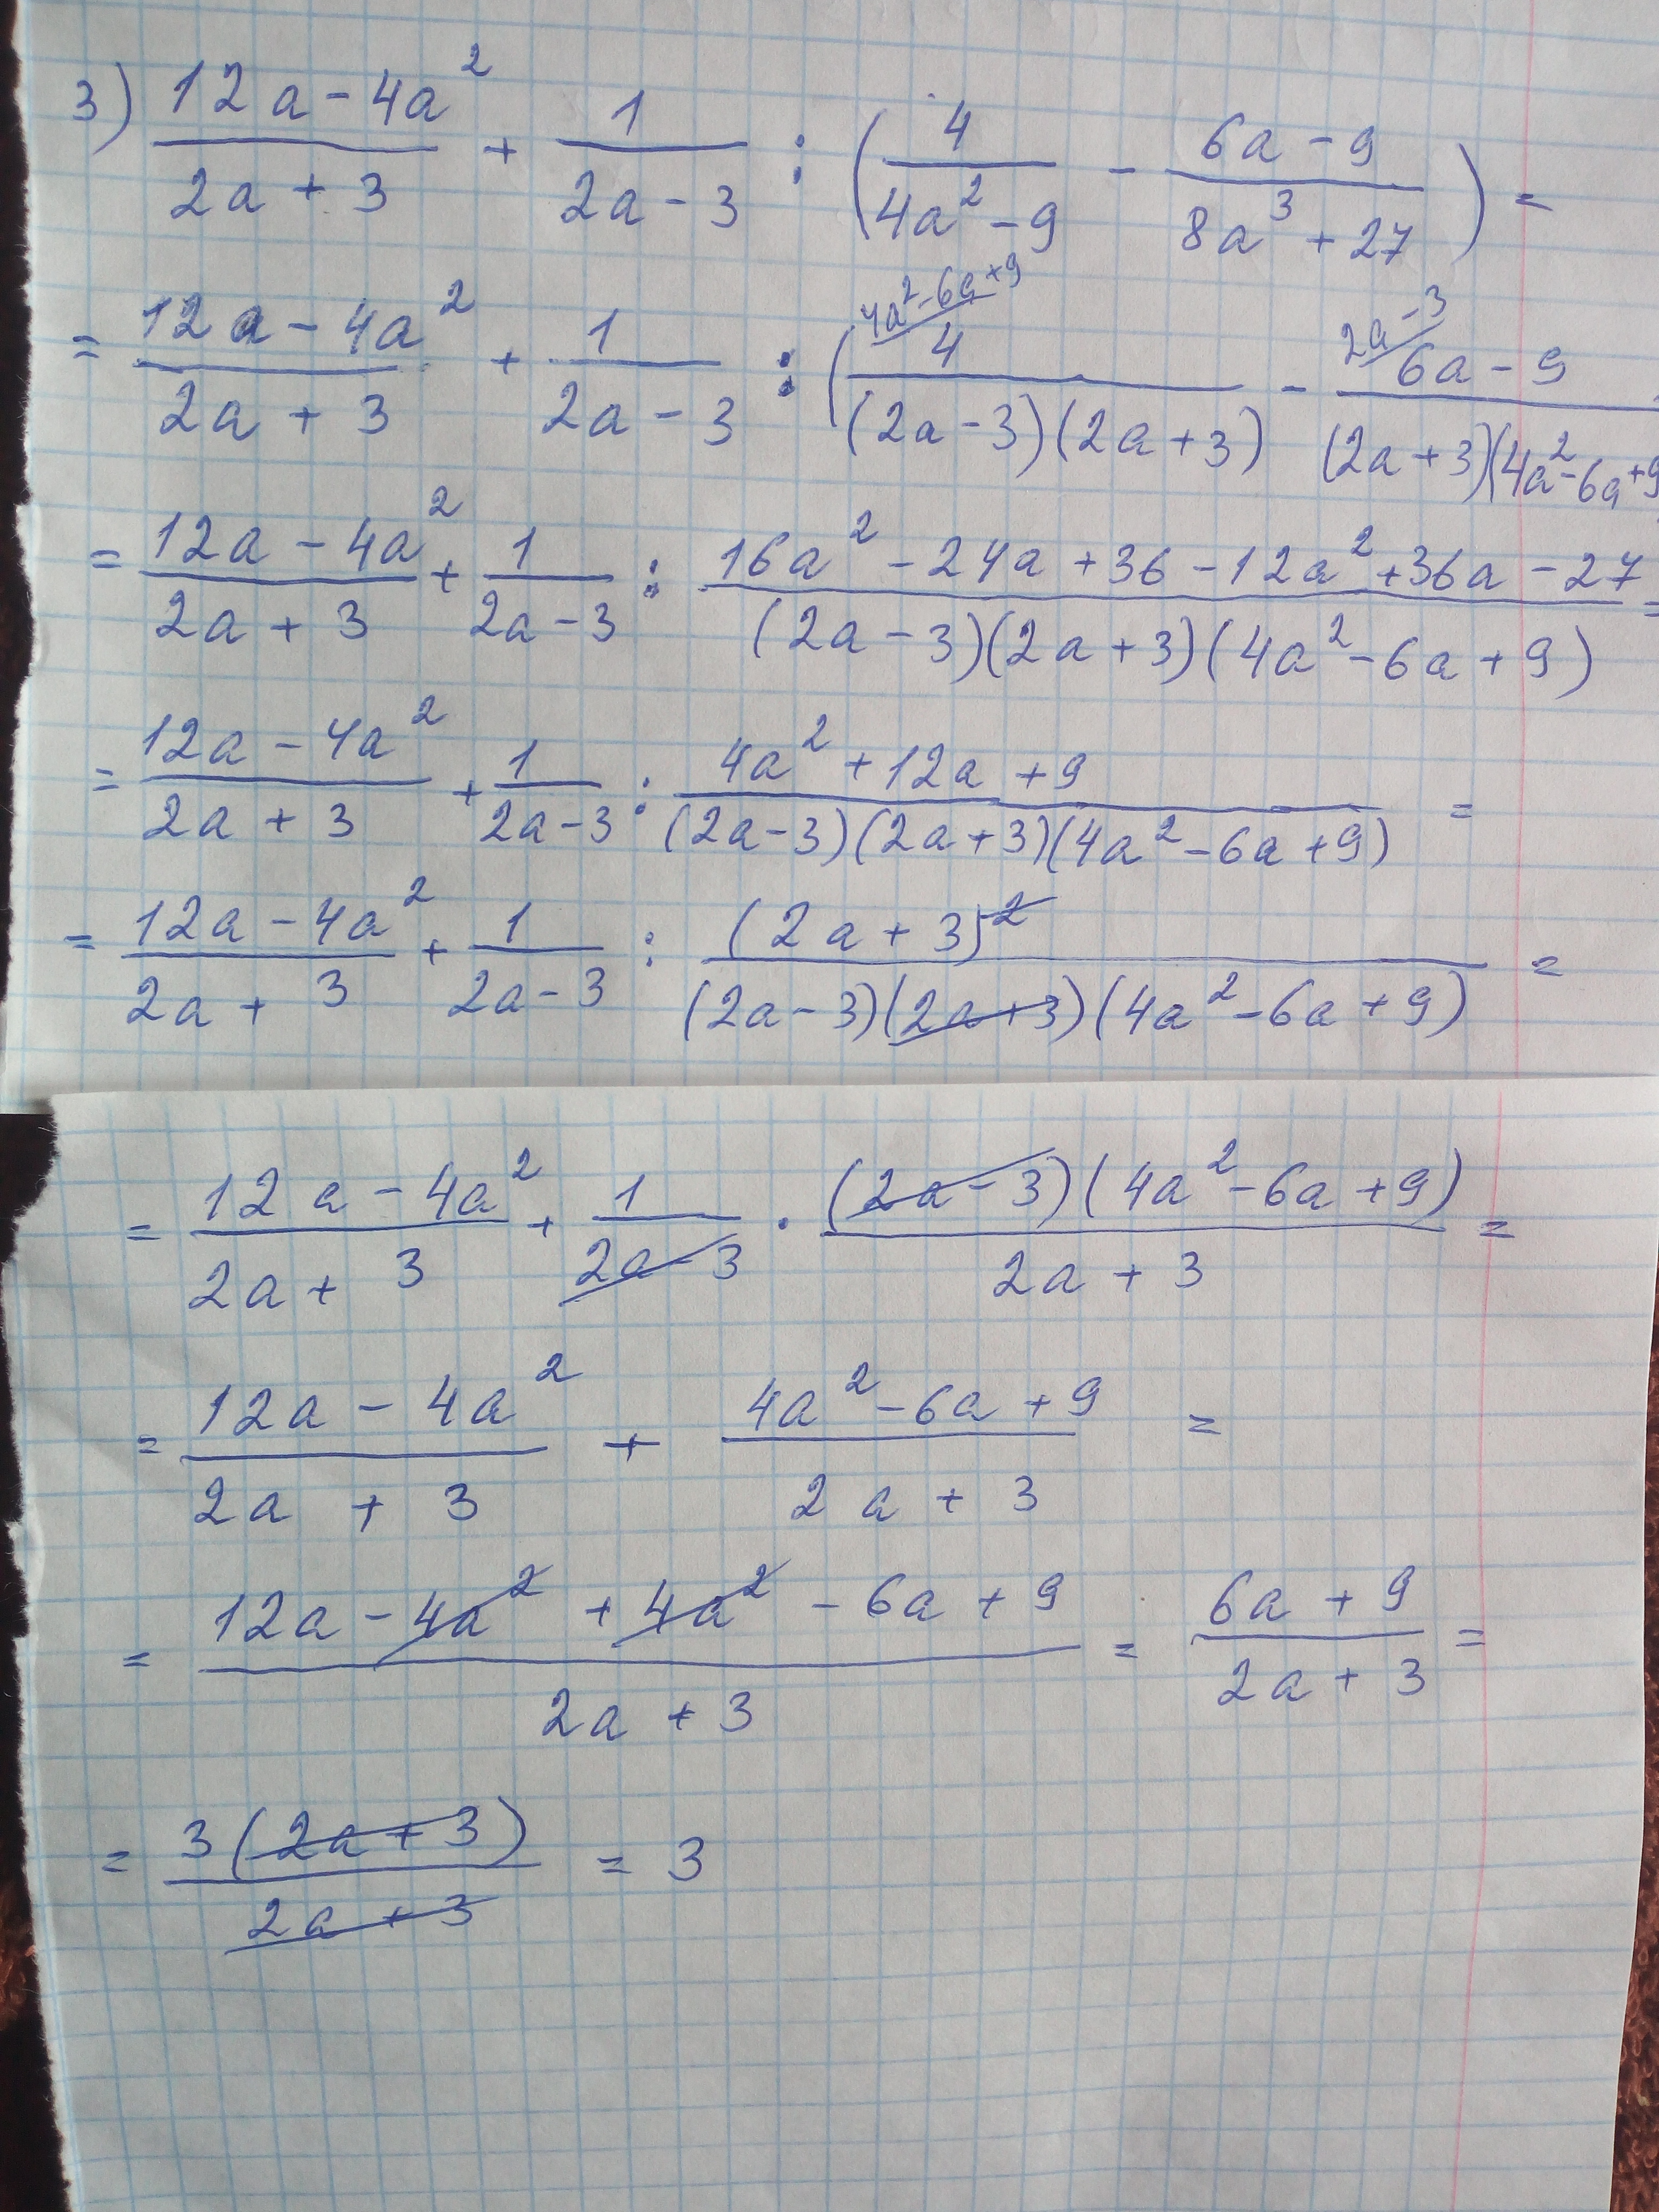 3) (12a - 4a²)/(2a + 3) + 1/(2a - 3) : (4/(4a² - 9) - (6a - 9)/(8a³ + 27)) =
= (12a - 4a²)/(2a + 3) + 1/(2a - 3) : (4a² - 6a + 9/ 4/((2a - 3)(2a + 3)) - 2a - 3/ (6a - 9)/((2a + 3)(4a² - 6a + 9
= (12a - 4a²)/(2a + 3) + 1/(2a - 3) : (16a² - 24a + 36 - 12a² + 36a - 27)/((2a - 3)(2a + 3)(4a² - 6a + 9)) =
= (12a - 4a²)/(2a + 3) + 1/(2a - 3) : (4a² + 12a + 9)/((2a - 3)(2a + 3)(4a² - 6a + 9)) =
= (12a - 4a²)/(2a + 3) + 1/(2a - 3) : (2a + 3)²/((2a - 3)(2a + 3)(4a² - 6a + 9)) =
= (12a - 4a²)/(2a + 3) + 1/(2a - 3) · ((2a - 3)(4a² - 6a + 9))/(2a + 3) =
= (12a - 4a²)/(2a + 3) + (4a² - 6a + 9)/(2a + 3) =
= (12a - 4a² + 4a² - 6a + 9)/(2a + 3) = (6a + 9)/(2a + 3) =
= 3(2a + 3)/(2a + 3) = 3